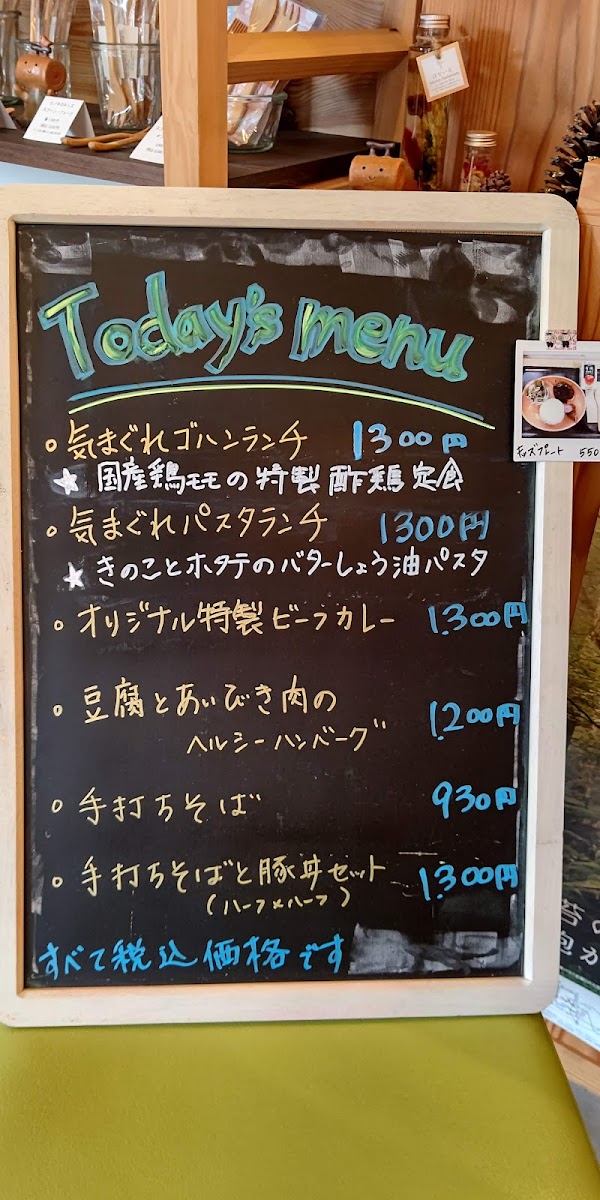 Today's menu
気まぐれゴハンランチ 1300円
★ 国産鶏モモの特製酢鶏定食
気まぐれパスタランチ 1300円
★ きのことホタテのバターしょう油パスタ
オリジナル特製ビーフカレー 1.300円
豆腐とあいびき肉の
ヘルシーハンバーグ 1.200円
手打ちそば 930円
手打ちそばと豚丼セット 1.300円
(ハーフ×ハーフ)
すべて税込価格です
キッズプレート 550